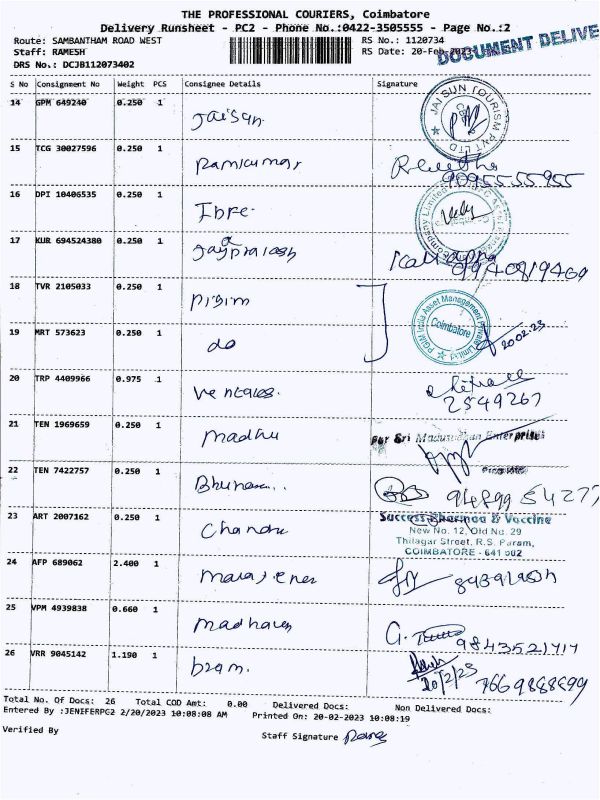 THE PROFESSIONAL COURIERS, Coimbatore
Delivery Runsheet - PC2 - Phone No.:0422-3505555 - Page No.:2
Route: SAMBANTHAM ROAD WEST
RS No.: 1120734
Staff: RAMESH
RS Date: 20-Feb-2023
DOCUMENT DELIVE
DRS No.: DCJB112073402
S No Consignment No Weight PCS Consignee Details Signature
14 GPM 649240 0.250 1 Jaisun
JAI SUN TOURISM PVT LTD
15 TCG 30027596 0.250 1 Ramkumar
9095555955
16 DPI 10406535 0.250 1
17 KUR 694524380 0.250 1 Jayprakash
18 TVR 2105033 0.250 1
PGIM India Asset Management Private Limited
Coimbatore
19 MRT 573623 0.250 1 do
20.02.23
20 TRP 4409966 0.975 1
2549267
21 TEN 1969659 0.250 1 Madhu
For Sri Madhusudhan Enterprises
22 TEN 7422757 0.250 1
94899 54277
23 ART 2007162 0.250 1 Chandru
Success Pharma & Vaccine
New No. 12, Old No. 29
Thilagar Street, R.S. Puram,
COIMBATORE - 641 002
24 AFP 689062 2.400 1
25 VPM 4939838 0.660 1 Madhavan
G.
9843521717
26 VRR 9045142 1.190 1
20/2/23
7669888699
Total No. Of Docs: 26 Total COD Amt: 0.00 Delivered Docs: Non Delivered Docs:
Entered By :JENIFERPG2 2/20/2023 10:08:08 AM Printed On: 20-02-2023 10:08:19
Verified By
Staff Signature